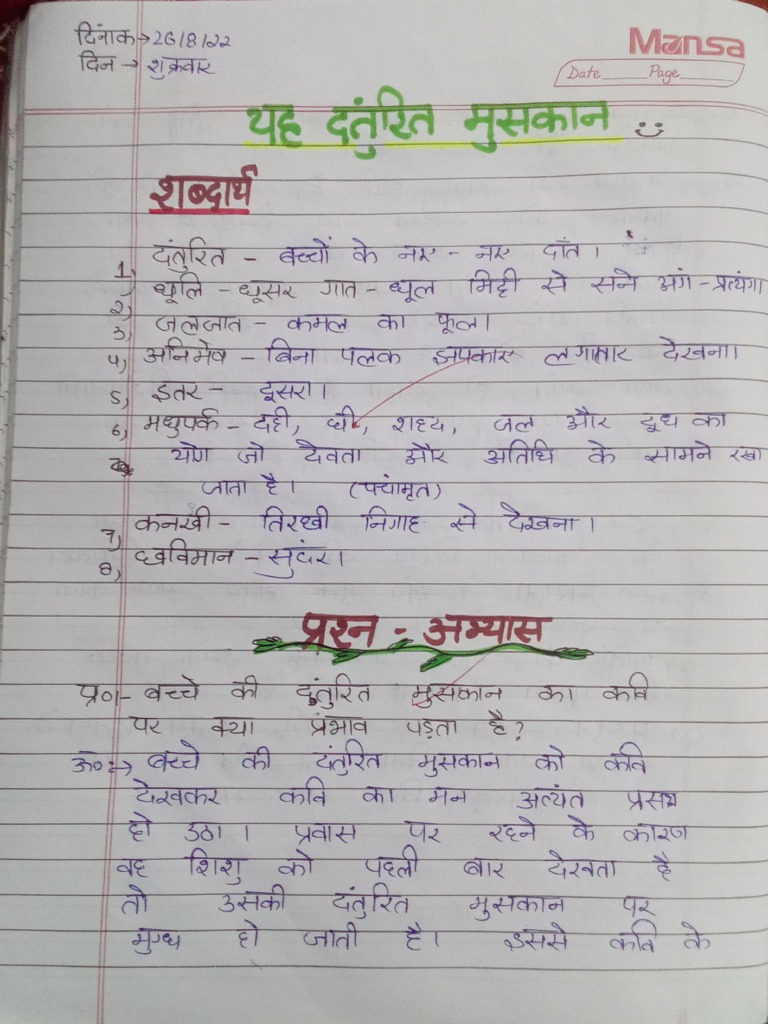 दिनांक→26/8/22
Mansa
दिन → शुक्रवार
Date Page
यह दंतुरित मुसकान
शब्दार्थ
1) दंतुरित - बच्चों के नए - नए दाँत।
2) धूलि - धूसर गात - धूल मिट्टी से सने अंग - प्रत्यंग
3) जलजात - कमल का फूल।
4) अनिमेष - बिना पलक झपकाए लगातार देखना।
5) इतर - दूसरा।
6) मधुपर्क - दही, घी, शहद, जल और दूध का
योग जो देवता और अतिथि के सामने रखा
जाता है। (पंचामृत)
7) कनखी - तिरछी निगाह से देखना।
8) छविमान - सुंदर।
प्रश्न - अभ्यास
प्र०1- बच्चे की दंतुरित मुसकान का कवि
पर क्या प्रभाव पड़ता है?
उ०:→ बच्चे की दंतुरित मुसकान को कवि
देखकर कवि का मन अत्यंत प्रसन्न
हो उठा। प्रवास पर रहने के कारण
वह शिशु को पहली बार देखता है
तो उसकी दंतुरित मुसकान पर
मुग्ध हो जाती है। इससे कवि के